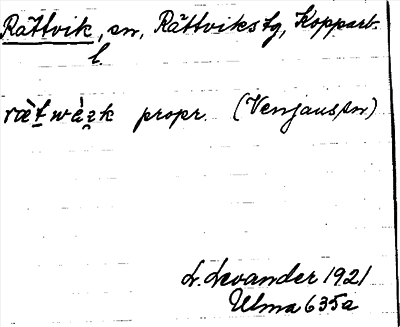 Rättvik, sn, Rättviks tg, Kopparb.
l.
propr. (Venjans sn)
L. Levander 1921
Ulma 635a